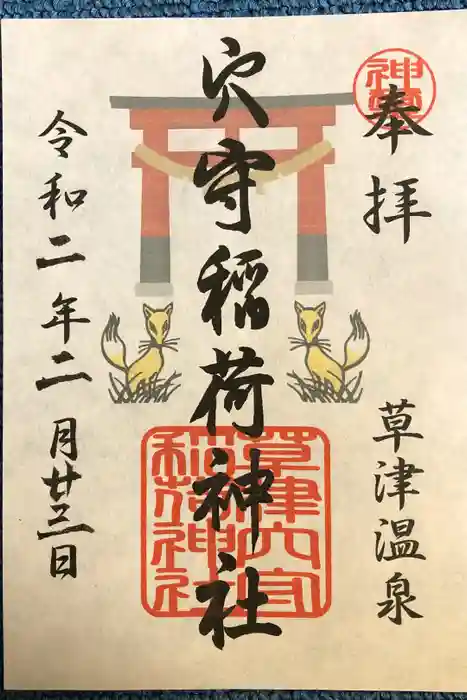 奉拝
草津温泉
穴守稲荷神社
令和二年二月廿三日
草津穴守
稲荷神社